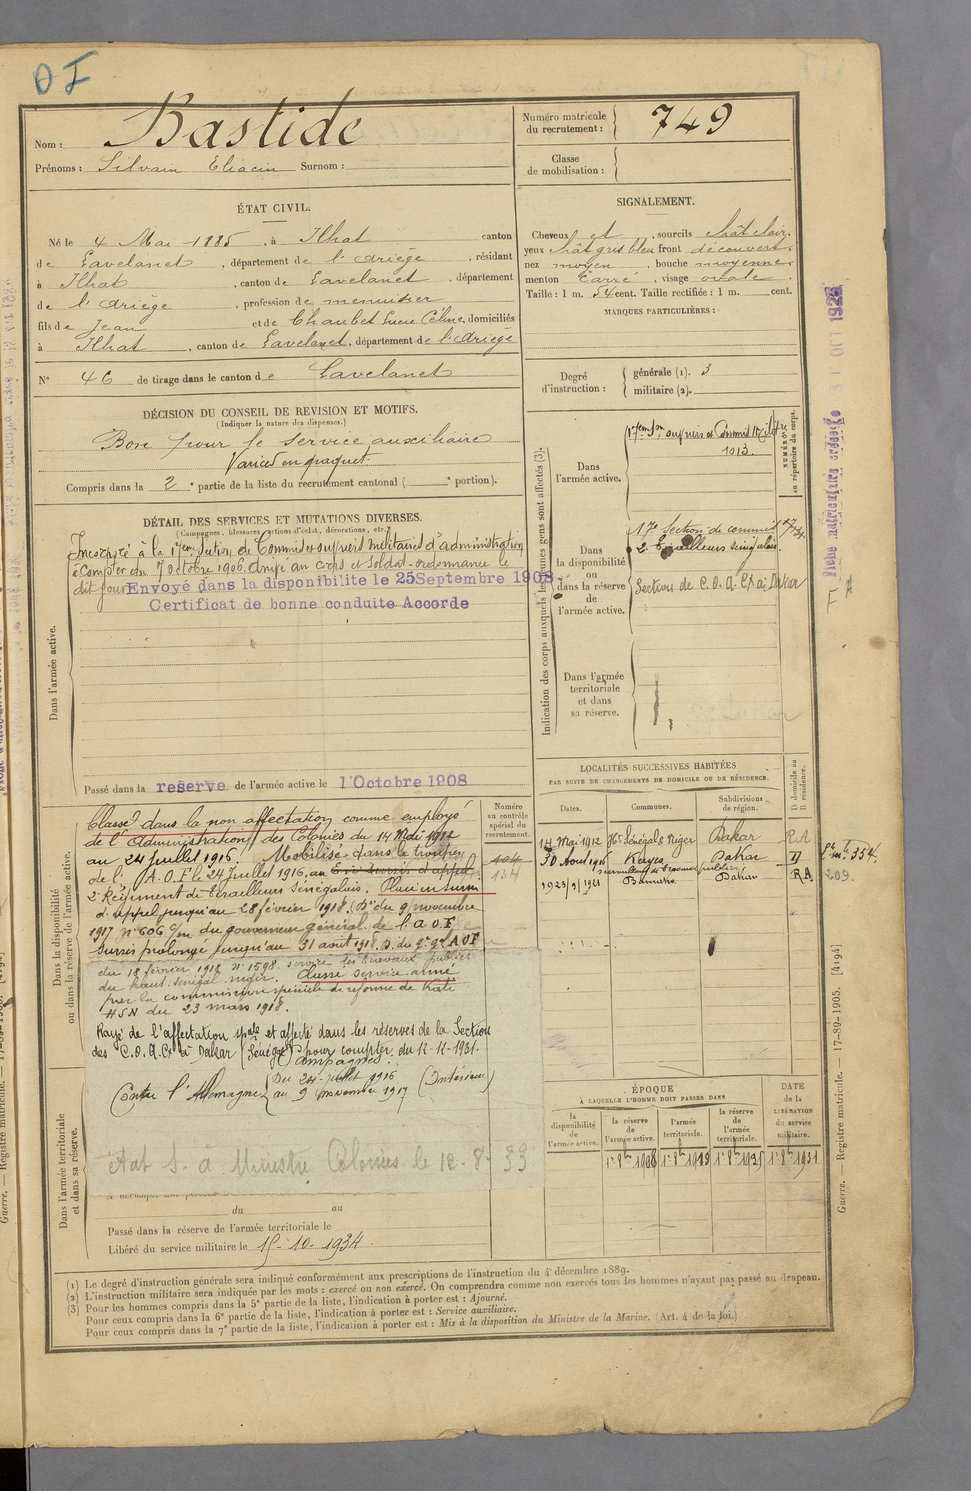 OI
Nom : Bastide
Prénoms : Silvain Eliacin Surnom :
Numéro matricule
du recrutement : 749
Classe
de mobilisation :
ÉTAT CIVIL.
Né le 4 Mai 1885, à Ilhat canton
de Lavelanet, département de l'Ariège, résidant
à Ilhat, canton de Lavelanet, département
de l'Ariège, profession de menuisier
fils de Jean et de Chaubet Lucie Céline, domiciliés
à Ilhat, canton de Lavelanet, département de l'Ariège
N° 46 de tirage dans le canton de Lavelanet
SIGNALEMENT.
Cheveux et, sourcils chât clair,
yeux chât gris bleu front découvert,
nez moyen, bouche moyenne,
menton carré, visage ovale.
Taille : 1 m. 54 cent. Taille rectifiée : 1 m. cent.
MARQUES PARTICULIÈRES :
Degré
d'instruction :
générale (1). 3
militaire (2).
DÉCISION DU CONSEIL DE REVISION ET MOTIFS.
(Indiquer la nature des dispenses.)
Bon pour le service auxiliaire
Varices en paquet.
Compris dans la 2e partie de la liste du recrutement cantonal ( e portion).
DÉTAIL DES SERVICES ET MUTATIONS DIVERSES.
(Campagnes, blessures, actions d'éclat, décorations, etc.)
Dans l'armée active.
Incorporé à la 17eme Section de Commis et ouvriers militaires d'administration
à compter du 7 Octobre 1906. Arrivé au corps et Soldat-ordonnance le
dit jour Envoyé dans la disponibilite le 25 Septembre 1908
Certificat de bonne conduite Accorde
Passé dans la reserve de l'armée active le 1 Octobre 1908
Indication des corps auxquels les jeunes gens sont affectés (3).
Dans
l'armée active.
17eme Son ouvriers et Commis Militre
1013.
NUMÉRO
au répertoire du corps.
Dans
la disponibilité
ou
dans la réserve
de
l'armée active.
17e Section de commis
2e Tirailleurs sénégalais.
Section de C.O.A. CX à Dakar
Dans l'armée
territoriale
et dans
sa réserve.
Fiche matriculaire créée le 31 OCT 1928
LOCALITÉS SUCCESSIVES HABITÉES
PAR SUITE DE CHANGEMENTS DE DOMICILE OU DE RÉSIDENCE.
Dates.
Communes.
Subdivisions
de région.
D domicile ou
R résidence.
14 Mai 1912 Ht Sénégal & Niger Dakar R.A
30 Aout 1916 Kayes Dakar
surveillant de Travaux publics
1923/9/1921 Bamako Dakar RA
354.
209.
Numéro
au contrôle
spécial du
recrutement.
404
134
Dans la disponibilité
ou dans la réserve de l'armée active.
Classé dans la non affectation comme employé
de l'Administration des Colonies du 14 Mai 1912
au 24 Juillet 1916. Mobilisé dans les troupes
de l'A.O.F. le 24 Juillet 1916, au En sursis d'appel
2e Régiment de Tirailleurs Sénégalais. Placé en sursis
d'appel jusqu'au 28 février 1918. (Don du 9 novembre
1917 N° 606 c/m du gouverneur général de l'A.O.F
Sursis prolongé jusqu'au 31 août 1918. D. du Gr. gal AOF
du 18 février 1918 n° 1598. service des travaux publics
du haut-sénégal-niger. Classé service armé
par la commission spéciale de réforme de Kati
HSN du 23 mars 1918.
Rayé de l'affectation sple et affecté dans les réserves de la Section
des C.O.A.CX à Dakar (Sénégal) pour compter du 12-11-1931.
Campagnes.
Contre l'Allemagne
Du 24 juillet 1916
au 9 novembre 1917 (Intérieur)
Dans l'armée territoriale
et dans sa réserve.
état S. à Ministre Colonies le 12-8-33
du au
Passé dans la réserve de l'armée territoriale le
Libéré du service militaire le 15-10-1934
ÉPOQUE
À LAQUELLE L'HOMME DOIT PASSER DANS
la
disponibilité
de
l'armée active.
la réserve
de
l'armée active.
l'armée
territoriale.
la réserve
de
l'armée
territoriale.
DATE
de la
LIBÉRATION
du service
militaire.
Guerre. — Registre matricule. — 17-89-1905. [4194]
(1) Le degré d'instruction générale sera indiqué conformément aux prescriptions de l'instruction du 4 décembre 1889.
(2) L'instruction militaire sera indiquée par les mots : exercé ou non exercé. On comprendra comme non exercés tous les hommes n'ayant pas passé au drapeau.
(3) Pour les hommes compris dans la 5e partie de la liste, l'indication à porter est : Ajourné.
Pour ceux compris dans la 6e partie de la liste, l'indication à porter est : Service auxiliaire.
Pour ceux compris dans la 7e partie de la liste, l'indication à porter est : Mis à la disposition du Ministre de la Marine. (Art. 4 de la loi.)